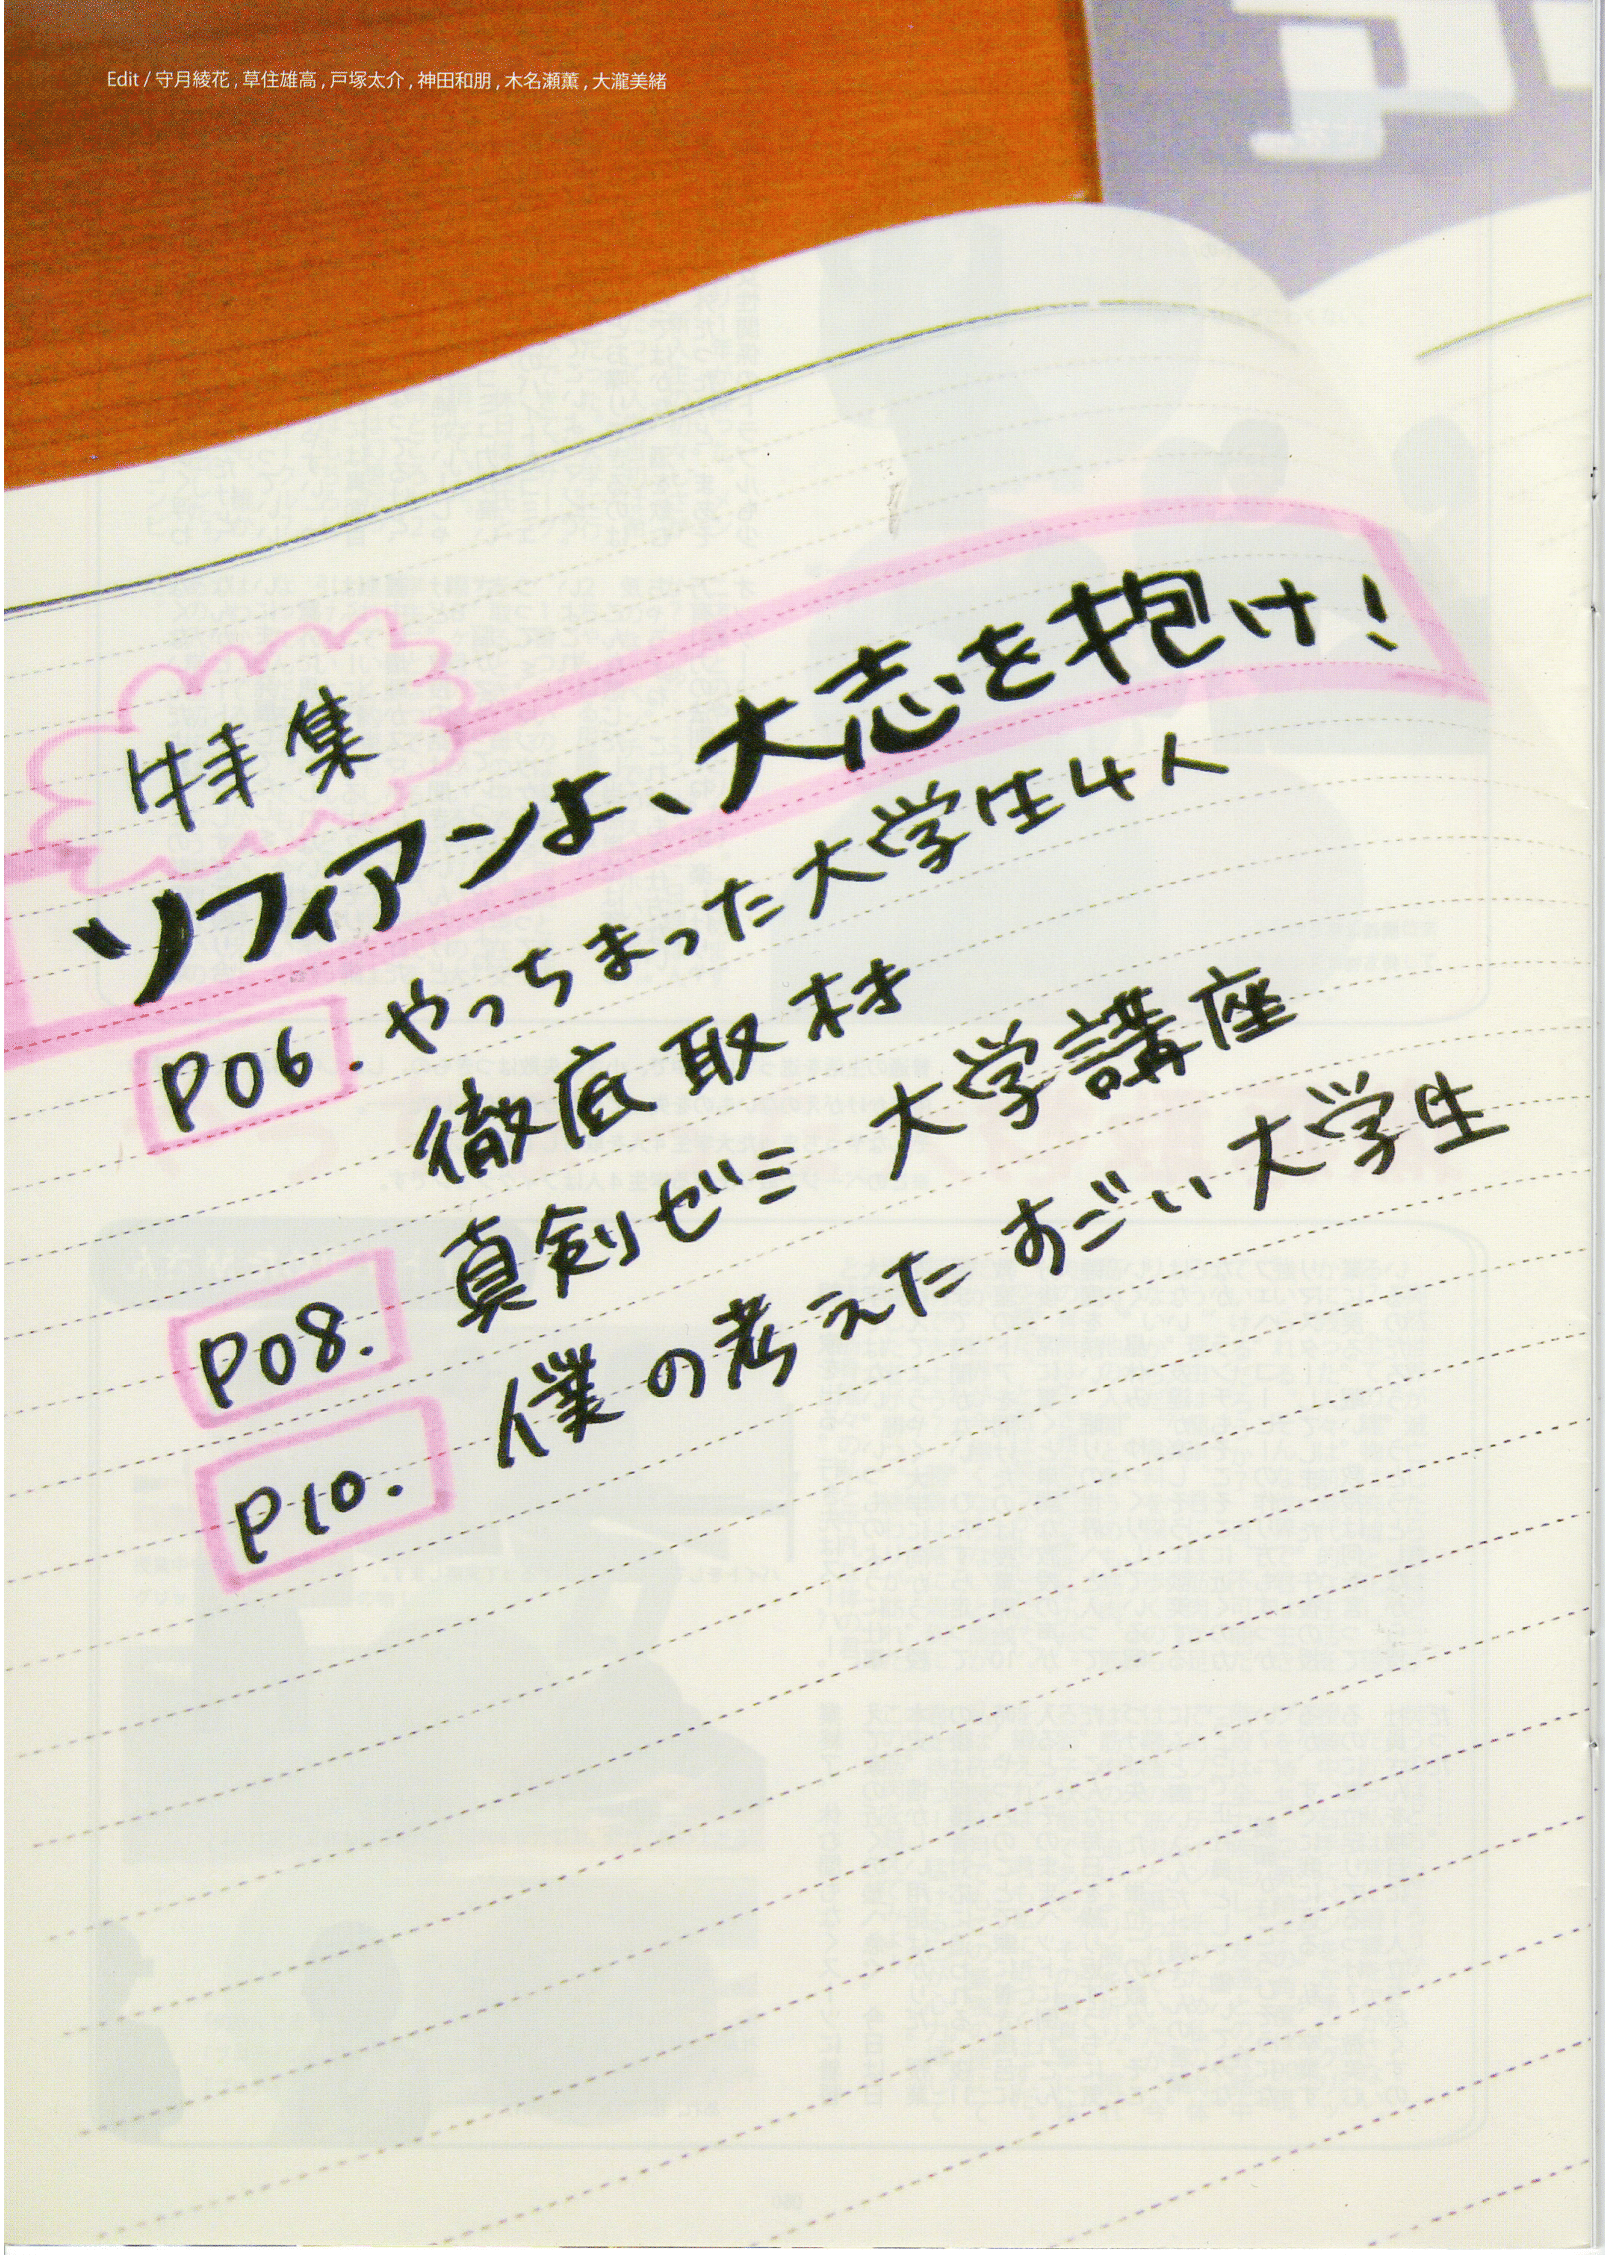 Edit / 守月綾花 , 草住雄高 , 戸塚太介 , 神田和朋 , 木名瀬薫 , 大瀧美緒
特集
ソフィアンよ、大志を抱け！
P06. やっちまった大学生4人
徹底取材
P08. 真剣ゼミ 大学講座
P10. 僕の考えた すごい大学生